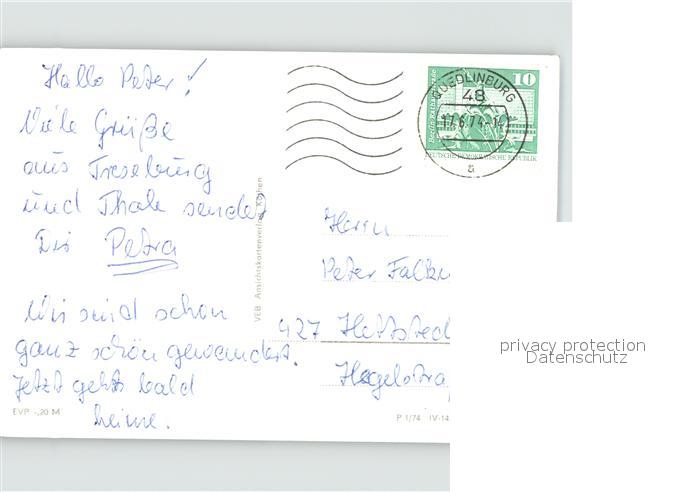 Hallo Peter!
Viele Grüße
aus Treseburg
und Thale sendet
Dir Petra
Wir sind schon
ganz schön gewandert.
Jetzt gehts bald
heime.
EVP -,20 M
VEB Ansichtskartenverlag Köthen
QUEDLINBURG
48
17.6.74-14
a
10
Berlin Rathausstraße
DEUTSCHE DEMOKRATISCHE REPUBLIK
Herrn
Peter
427 Hettsted
Hegelstra
P 1/74 IV-14
privacy protection
Datenschutz